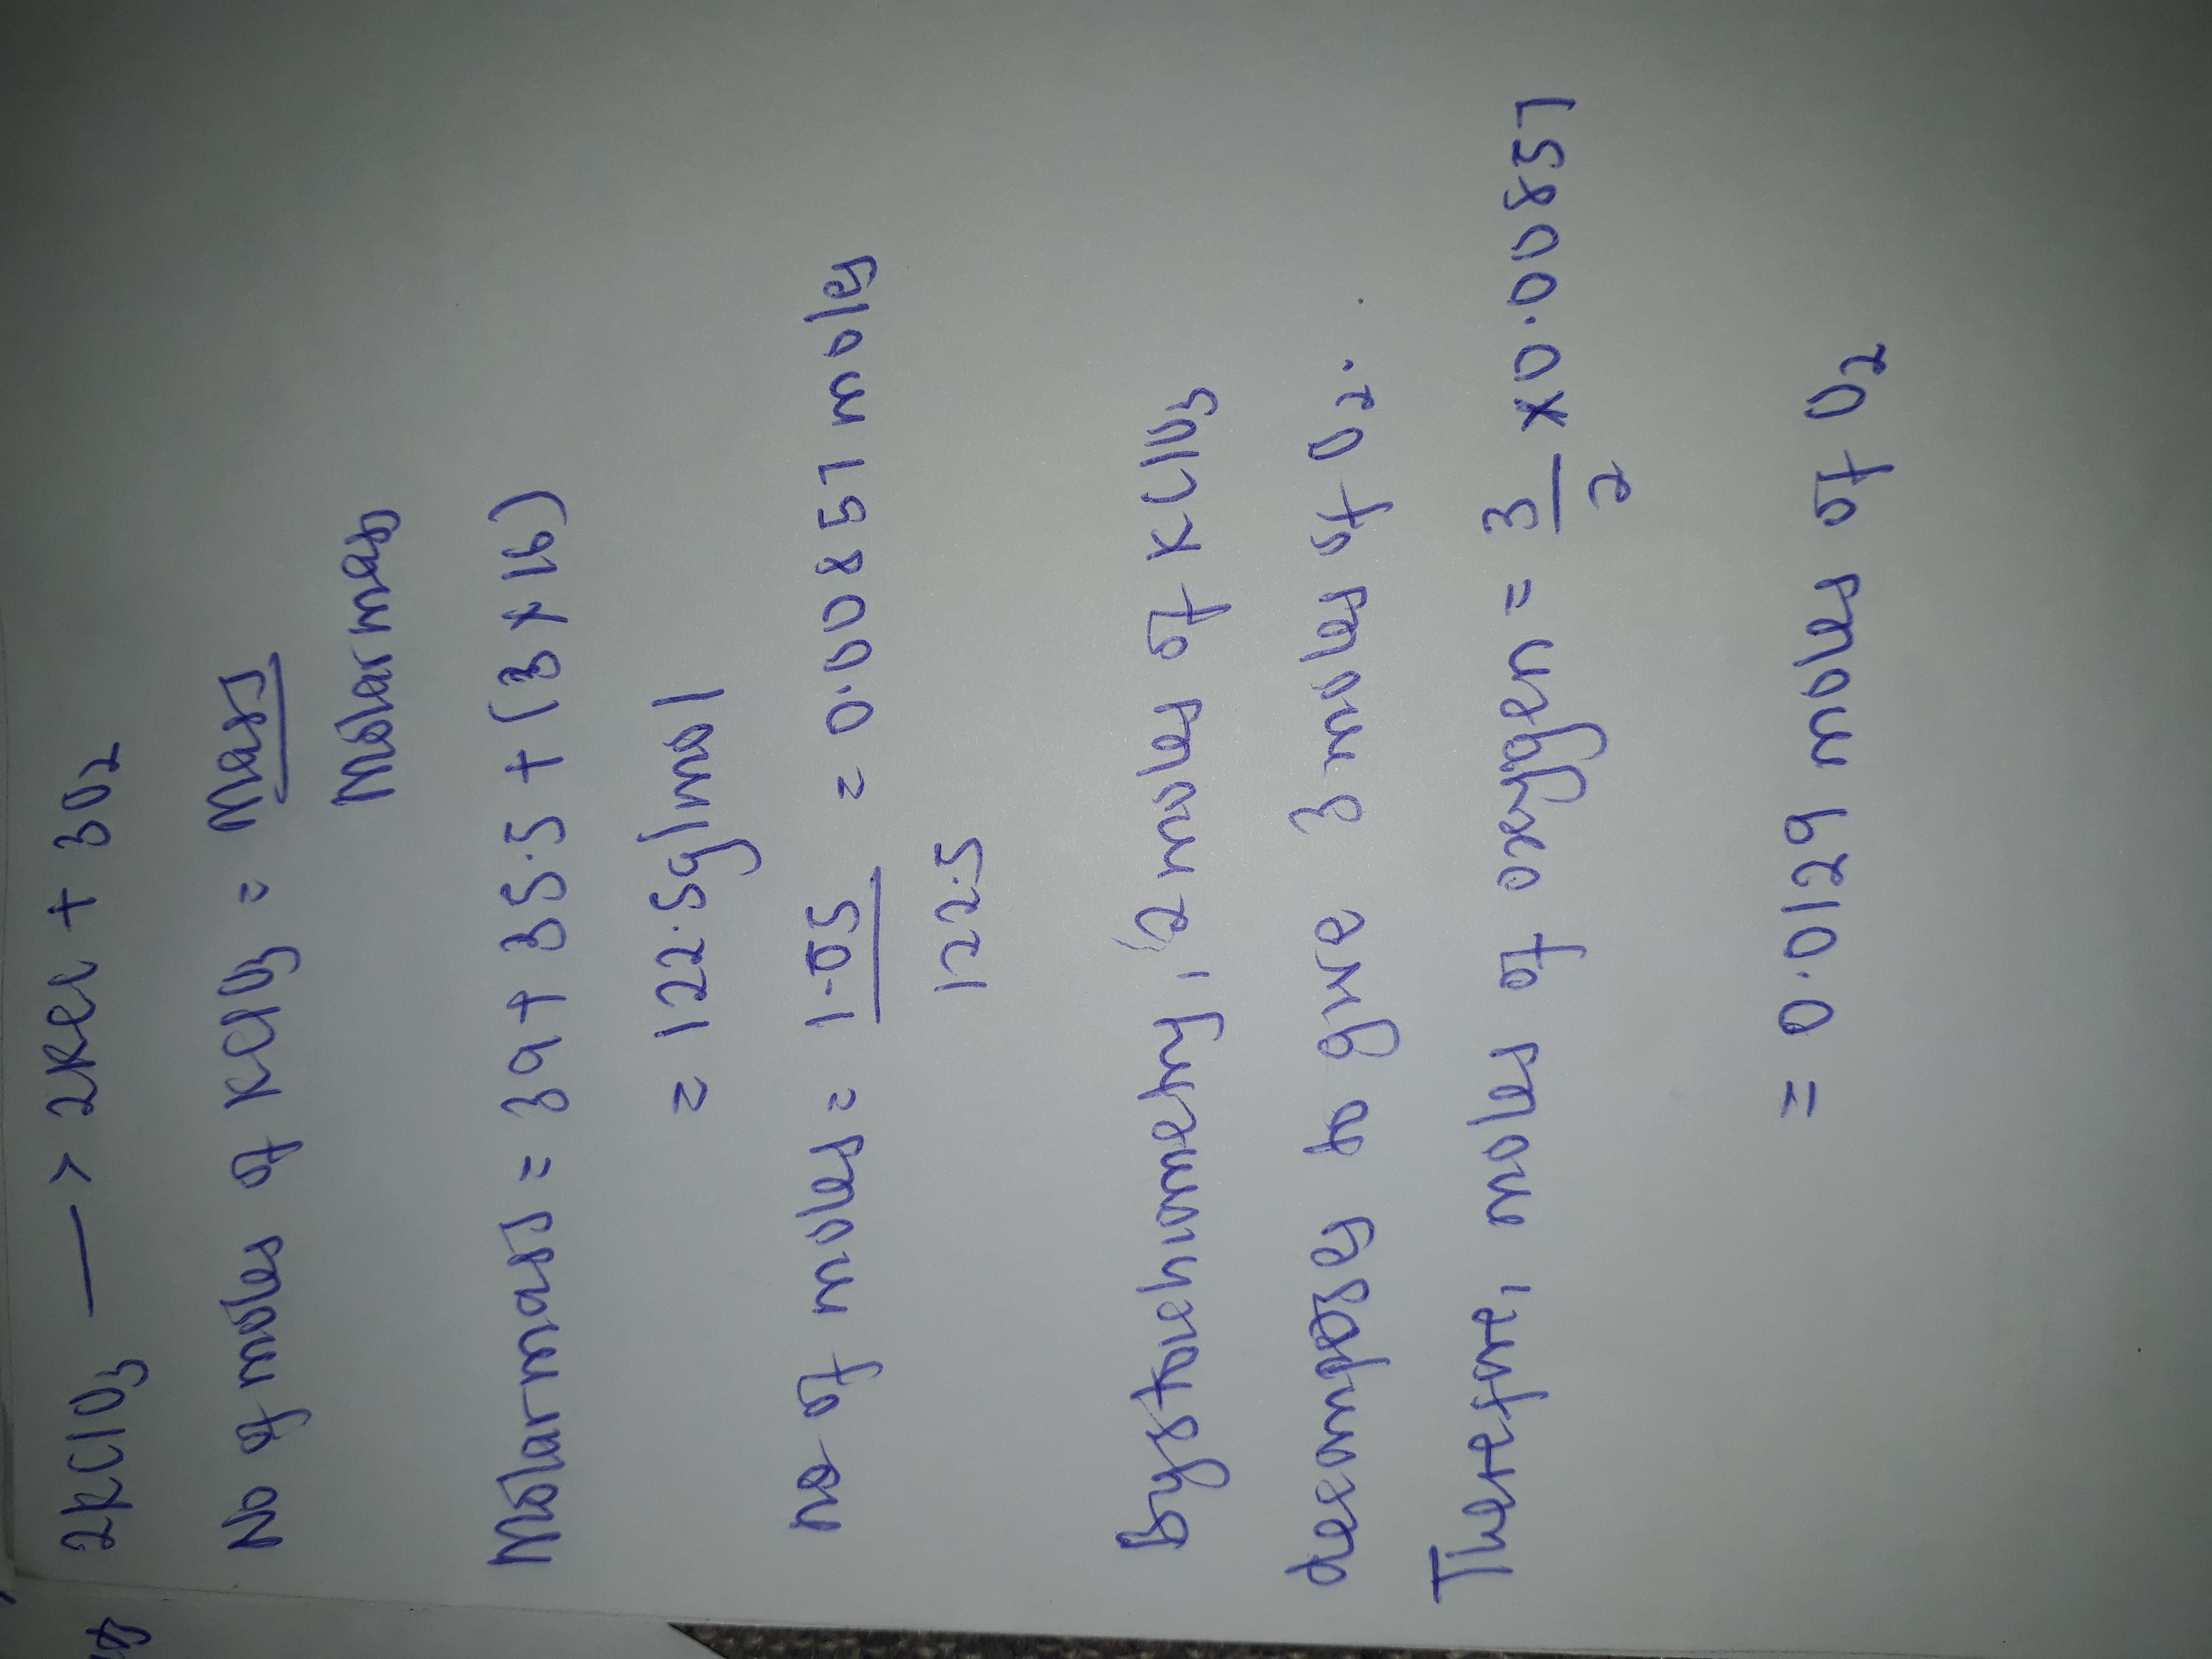 2KClO3 —> 2KCl + 3O2
No of moles of KClO3 = Mass
Molar mass
Molar mass = 39 + 35.5 + (3 x 16)
= 122.5g/mol
no of moles = 1.05 = 0.00857 moles
122.5
By stoichiometry, 2 moles of KClO3
decomposes to give 3 moles of O2.
Therefore, moles of oxygen = 3 x 0.00857
2
= 0.0129 moles of O2